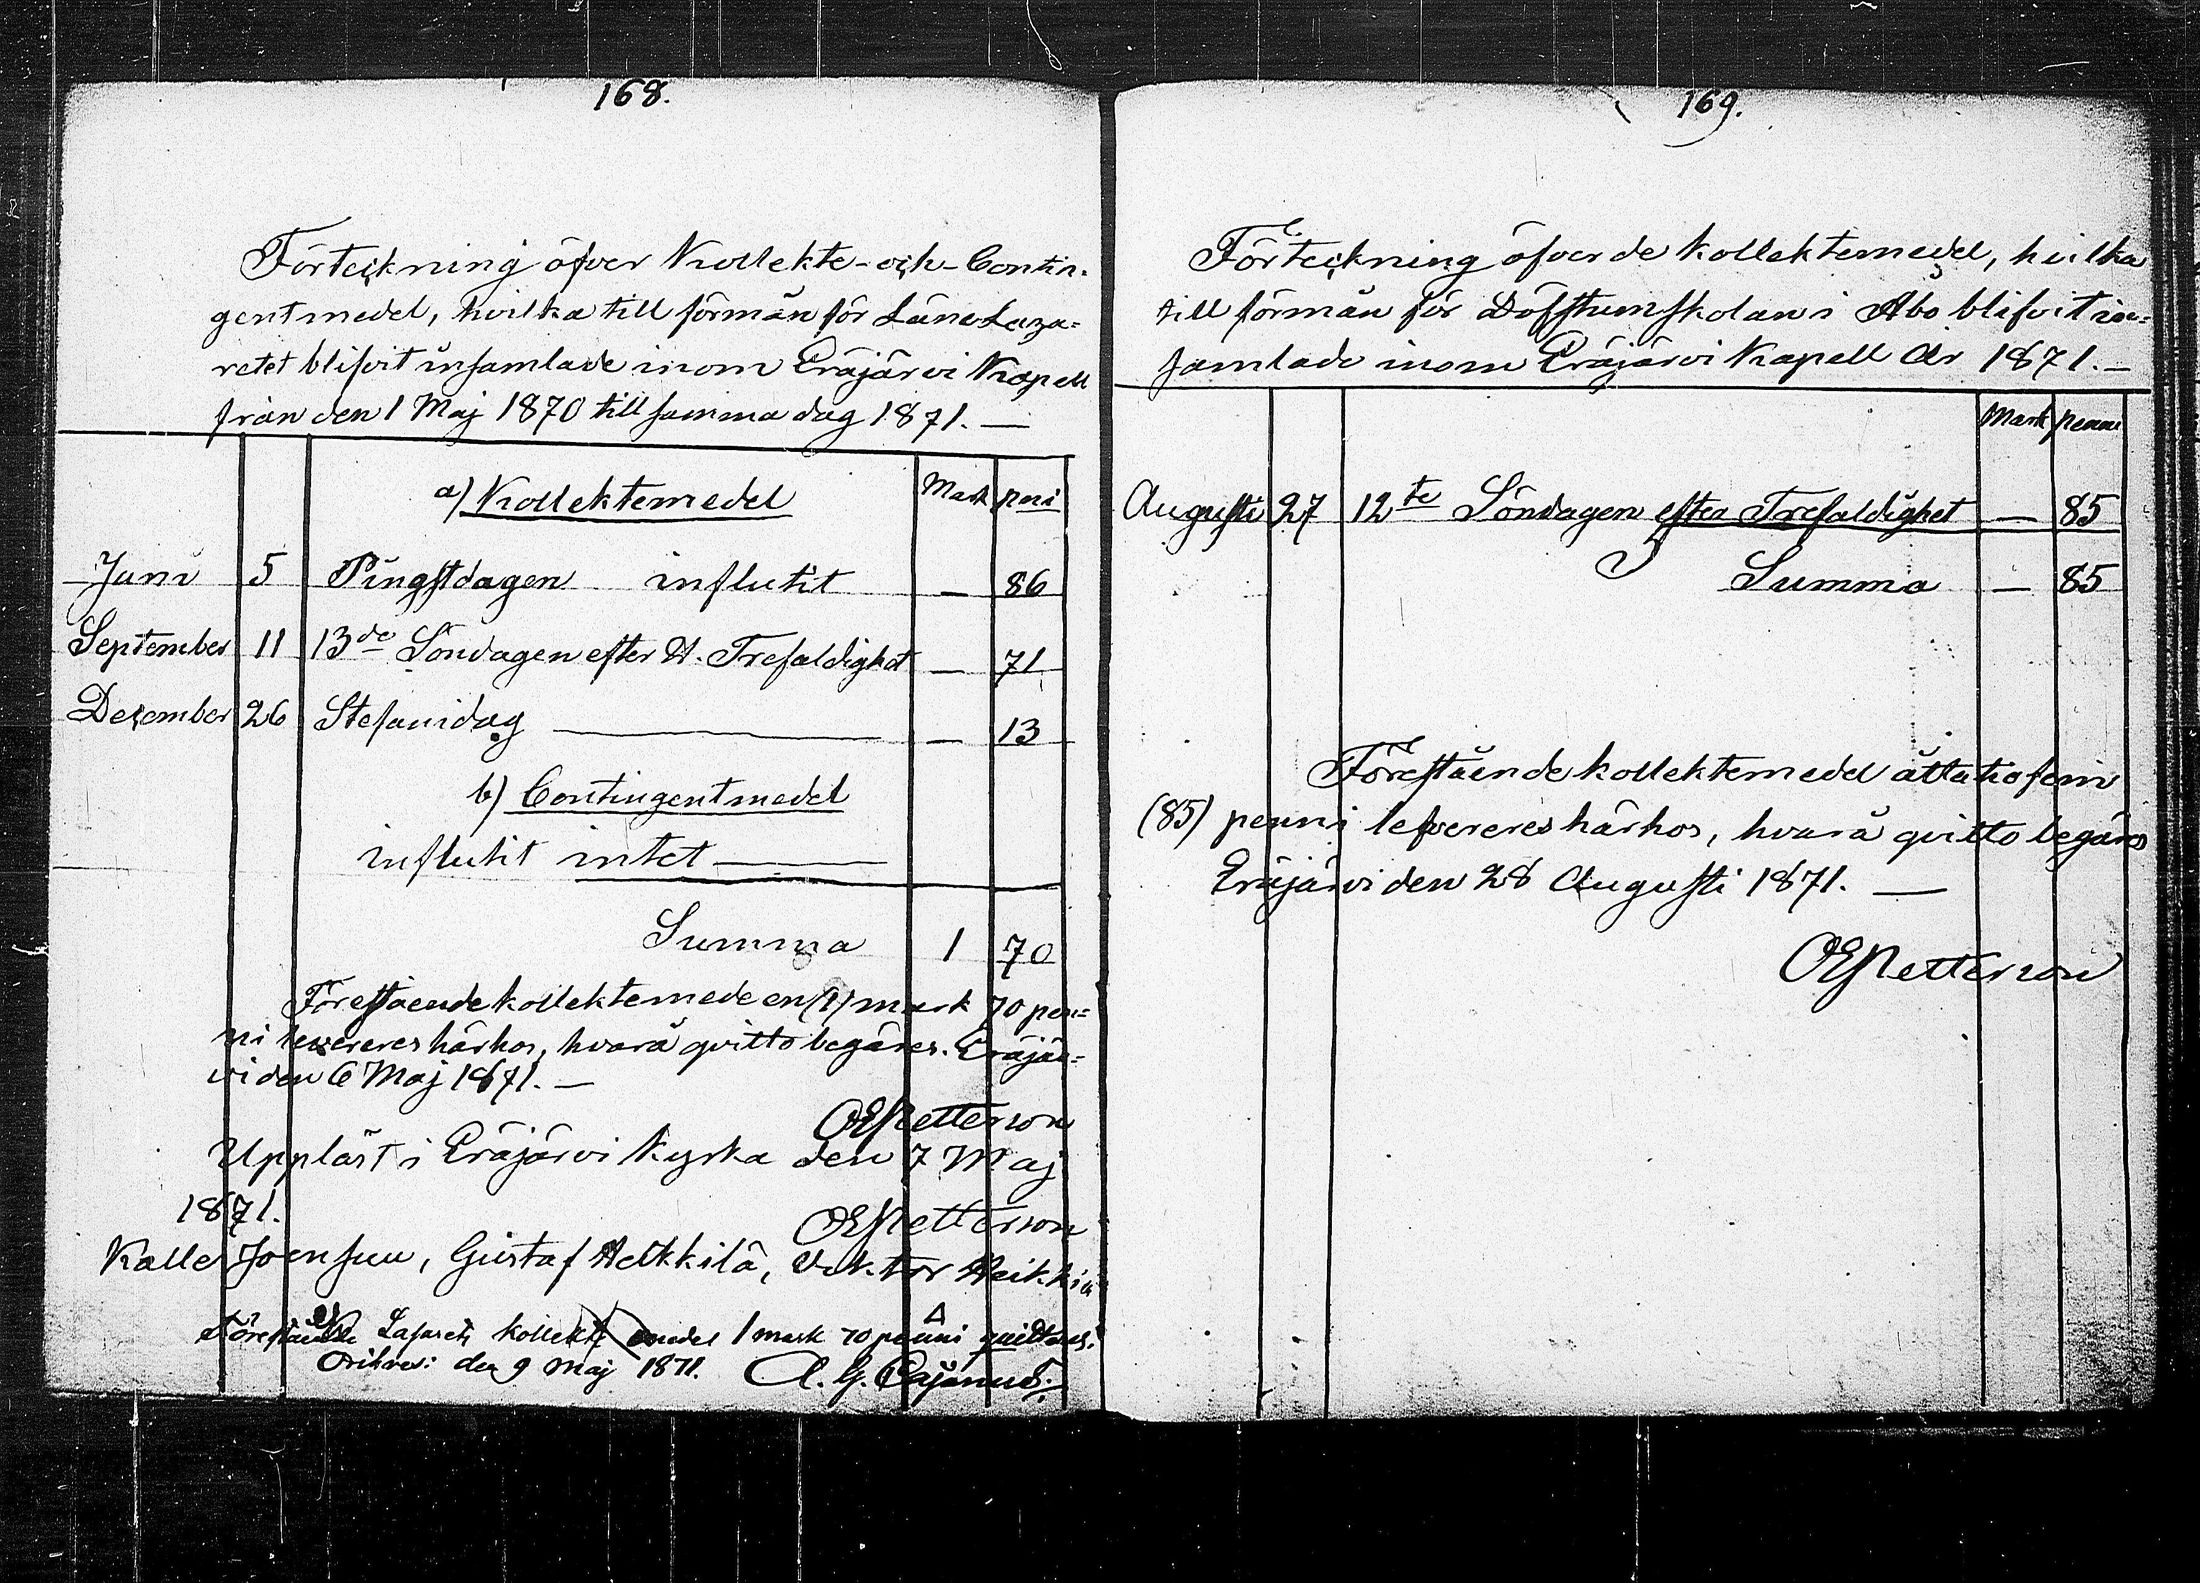 168.
Förteckning öfver Kollekte- och Contin-
gentmedel, hvilka till förmån för Läns Laza=
retet blifvit insamlade inom Eräjärvi Kapell
från den 1 Maj 1870 till samma dag 1871. —
a) Kollektemedel Mark pni
Juni 5 Pingstdagen influtit — 86
September 11 13de Söndagen efter H. Trefaldighet — 71
December 26 Stefanidag — — 13
b) Contingentmedel
influtit intet —
Summa 1 70
Förestående kollektemede en (1) mark 70 pen=
ni levereres härhos, hvarå qvitto begäres. Eräjär=
vi den 6 Maj 1871. —
OEPetterson
Uppläst i Eräjärvi Kyrka den 7 Maj
1871.
OEPetterson
Kalle Joensuu, Gustaf Heikkilä, Viktor Heikkilä
Förestående Lasarets kollekt medel 1 mark 70 penni quitteras.
Orihvesi den 9 Maj 1871. A. G. Cajanus.
169.
Förteckning öfver de kollektemedel, hvilka
till förmån för Döfstumskolan i Åbo blifvit in=
samlade inom Eräjärvi Kapell År 1871. —
Mark penni
Augusti 27 12te Söndagen efter Trefaldighet — 85
Summa — 85
Förestående kollektemedel åttatiofem
(85) penni lefvereres härhos, hvarå qvitto begäres
Eräjärvi den 28 Augusti 1871. —
OEPetterson